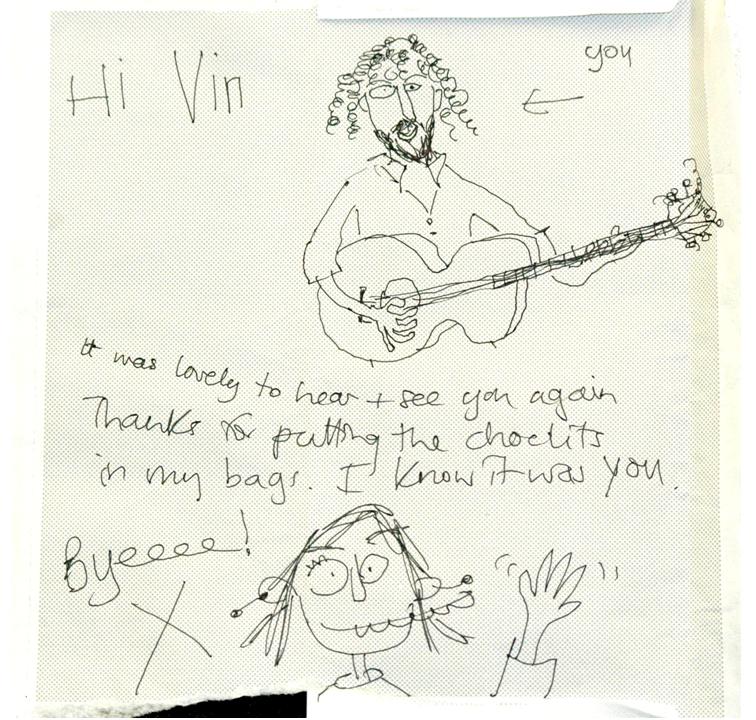 Hi Vin
you
It was lovely to hear + see you again
Thanks for putting the choclits
in my bags. I know it was you.
Byeeeee!
X